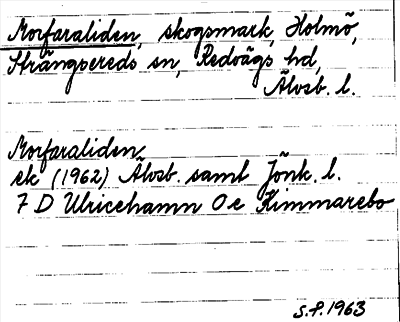 Morfaraliden, skogsmark, Holmö,
Strängsereds sn, Redvägs hd,
Älvsb. l.
Morfaraliden
ek (1962) Älvsb. samt Jönk. l.
7 D Ulricehamn Oe Kimmarebo
S.P. 1963